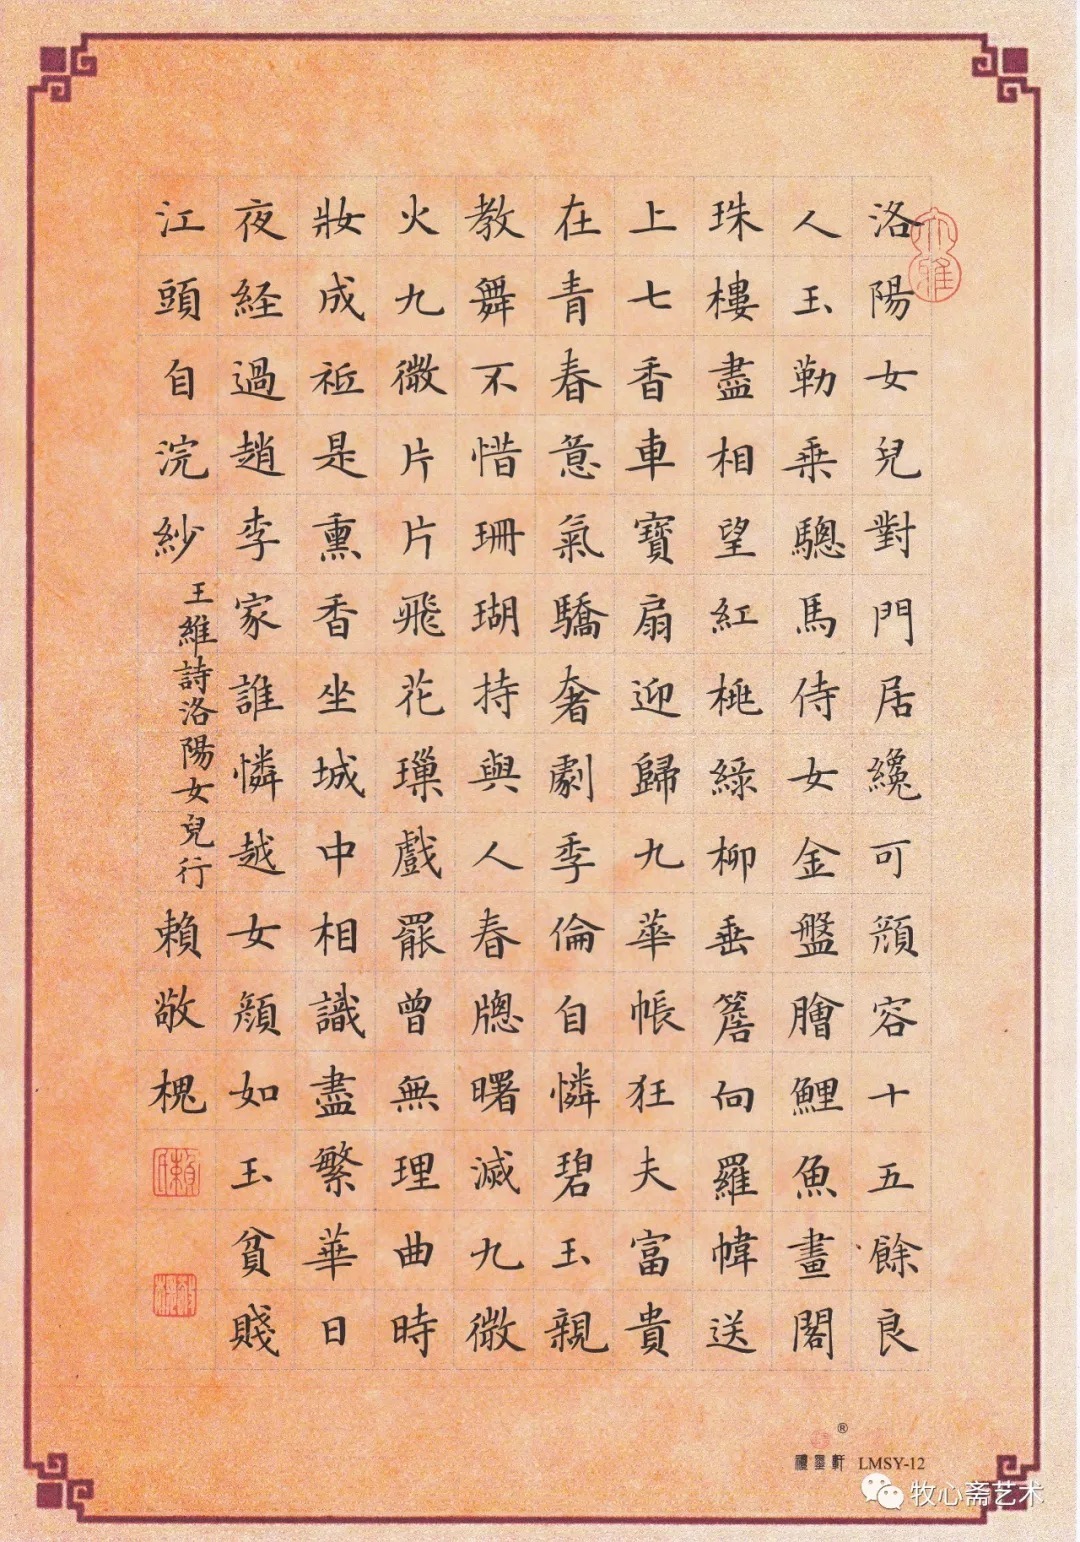 洛陽女兒對門居纔可顔容十五餘良
人玉勒乗驄馬侍女金盤膾鯉魚畫閣
珠樓盡相望紅桃綠柳垂簷向羅幃送
上七香車寶扇迎歸九華帳狂夫富貴
在青春意氣驕奢劇季倫自憐碧玉親
教舞不惜珊瑚持與人春牎曙滅九微
火九微片片飛花璅戲罷曾無理曲時
妝成祗是熏香坐城中相識盡繁華日
夜経過趙李家誰憐越女顔如玉貧賤
江頭自浣紗 王維詩洛陽女兒行 賴敬槐
大雅
®
禮墨軒 LMSY-12
牧心斋艺术